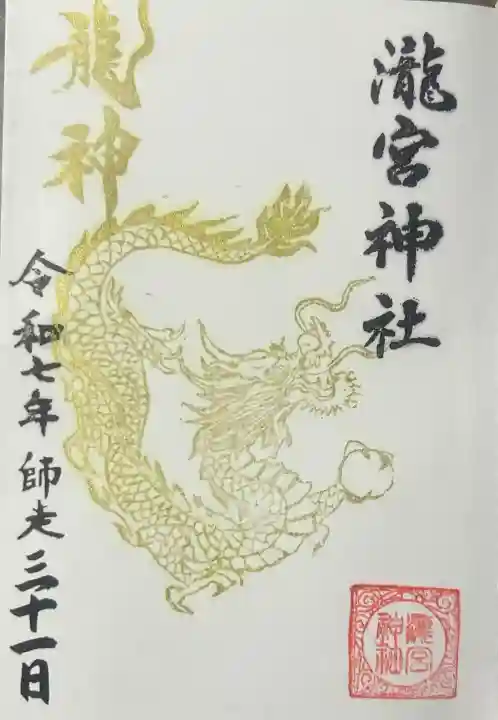 瀧宮神社
龍神
令和七年師走三十一日
瀧宮
神社